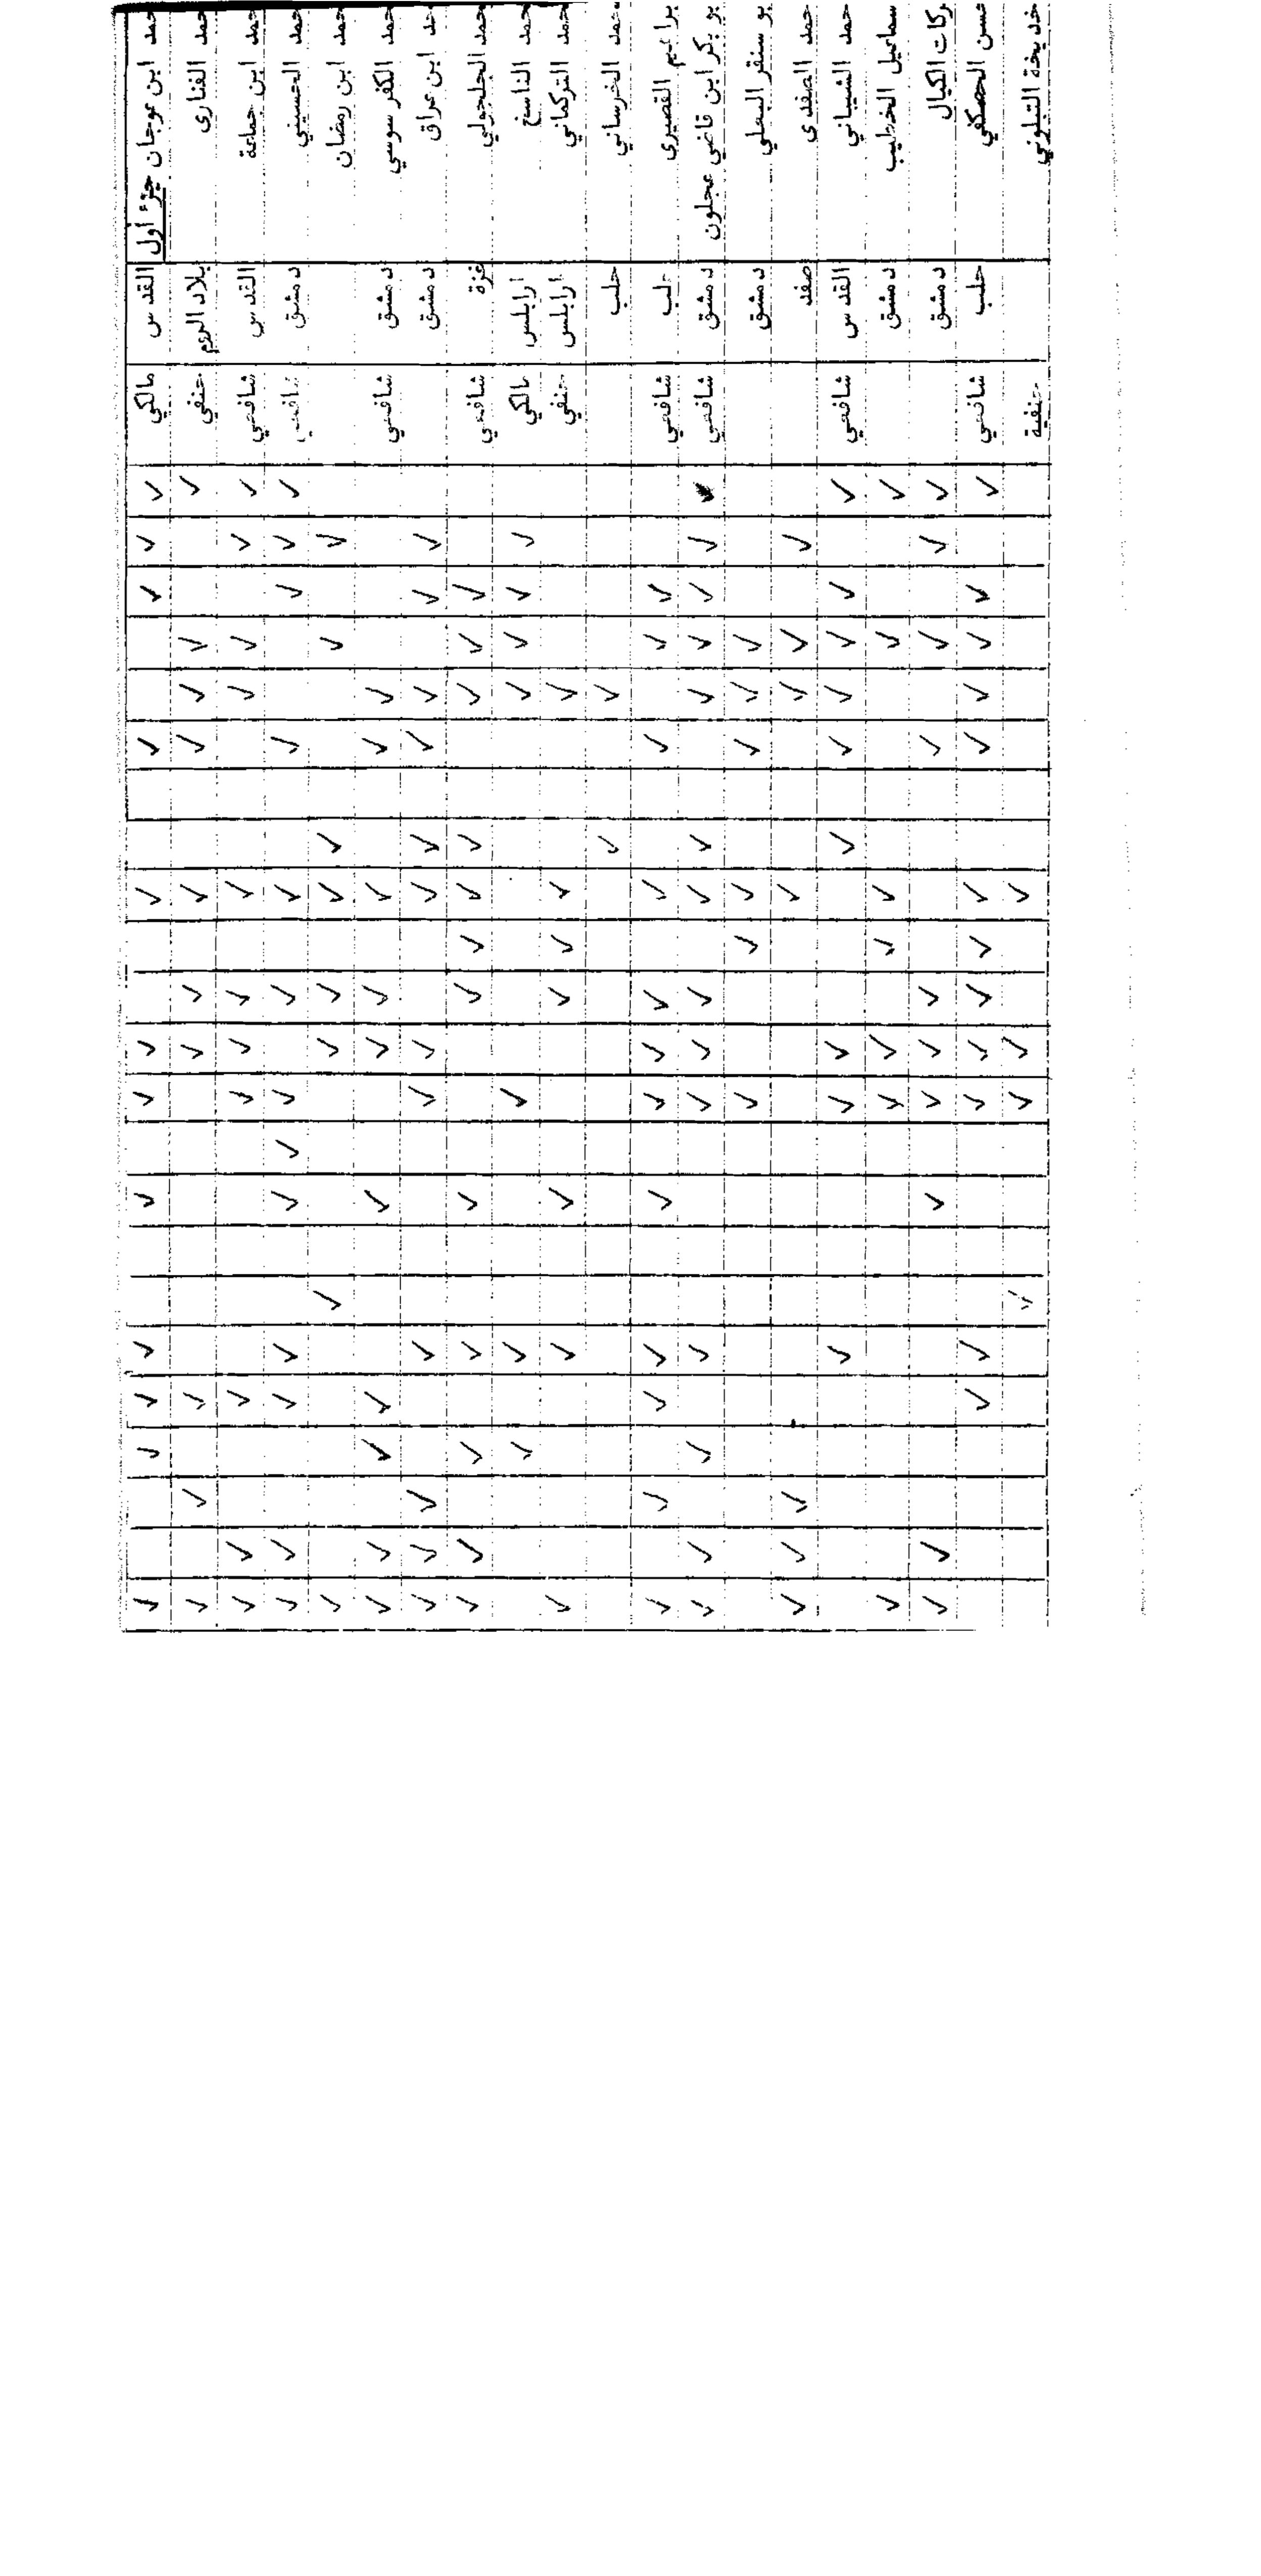 حمد ابن عوجان جزء أول القدس مالكي
حمد الفنارى بلاد الروم حنفي
حمد ابن جماعة القدس شافعي
حمد الحسيني دمشق شافعي
حمد ابن رمضان
حمد الكفرسوسي دمشق شافعي
حمد ابن عراق دمشق
حمد الجلجولي غزة شافعي
حمد الناسخ طرابلس مالكي
حمد التركماني طرابلس حنفي
حمد الخرساني حلب
براهيم القصيرى حلب شافعي
بو بكر ابن قاضي عجلون دمشق شافعي
بو سنقر البعلي دمشق
حمد الصفدى صفد
حمد الشيباني القدس شافعي
سماعيل الخطيب دمشق
ركات الكيال دمشق
حسن الحصكفي حلب شافعي
خديخة التيلوني حنفية